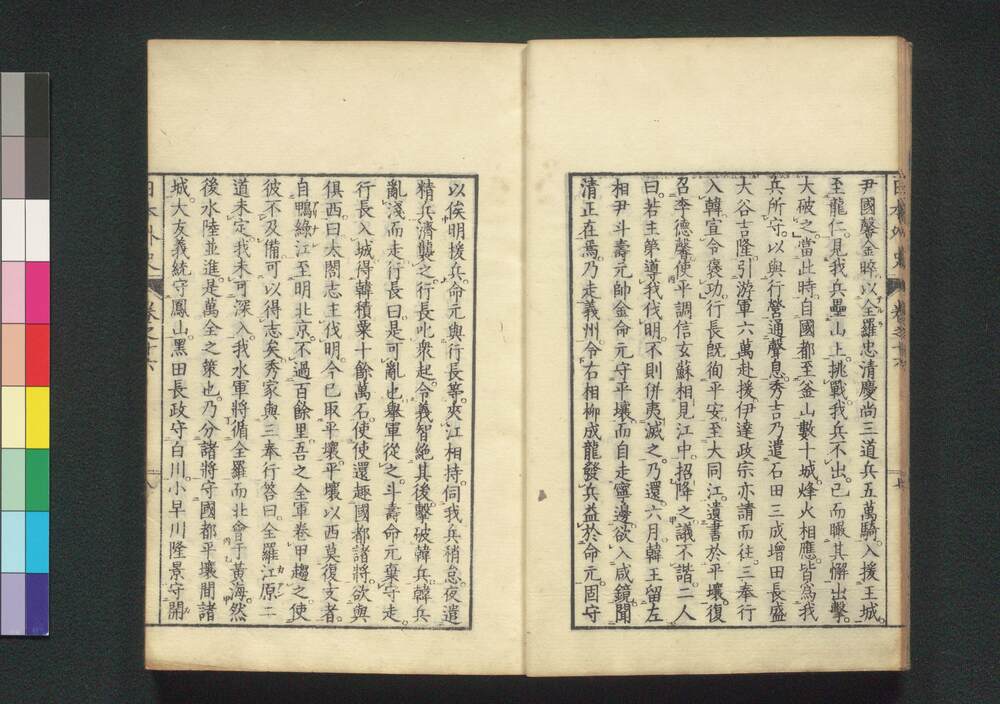 尹國馨金睟以全羅忠清慶尚三道兵五萬騎入援王城
至龍仁見我兵壘山上挑戰我兵不出已而瞰其懈出擊
大破之當此時自國都至釜山數十城烽火相應皆為我
兵所守以與行營通聲息秀吉乃遣石田三成增田長盛
大谷吉隆引游軍六萬赴援伊達政宗亦請而往三奉行
入韓宣令褒功行長既徇平安至大同江遺書於平壤復
召李德馨使平調信玄蘇相見江中招降之議不諧二人
曰若主弟導我伐明不則併夷滅之乃還六月韓王留左
相尹斗壽元帥金命元守平壤而自走寧邊欲入咸鏡聞
清正在焉乃走義州令右相柳成龍發兵益於命元固守
以俟明援兵命元與行長等夾江相持伺我兵稍怠夜遣
精兵濟襲之行長叱衆起令義智絕其後擊破韓兵韓兵
亂淺而走行長曰是可亂也舉軍從之斗壽命元棄守走
行長入城得韓積粟十餘萬石使使還趣國都諸將欲與
俱西曰太閤志主伐明今已取平壤平壤以西莫復支者
自鴨綠江至明北京不過百餘里吾之全軍卷甲趨之使
彼不及備可以得志矣秀家與三奉行答曰全羅江原二
道未定我未可深入我水軍將循全羅而北會于黃海然
後水陸並進是萬全之策也乃分諸將守國都平壤間諸
城大友義統守鳳山黑田長政守白川小早川隆景守開
日本外史 卷之十六